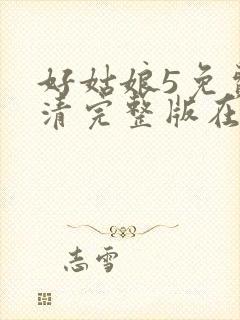 好姑娘5免费
清完整版在
志雪